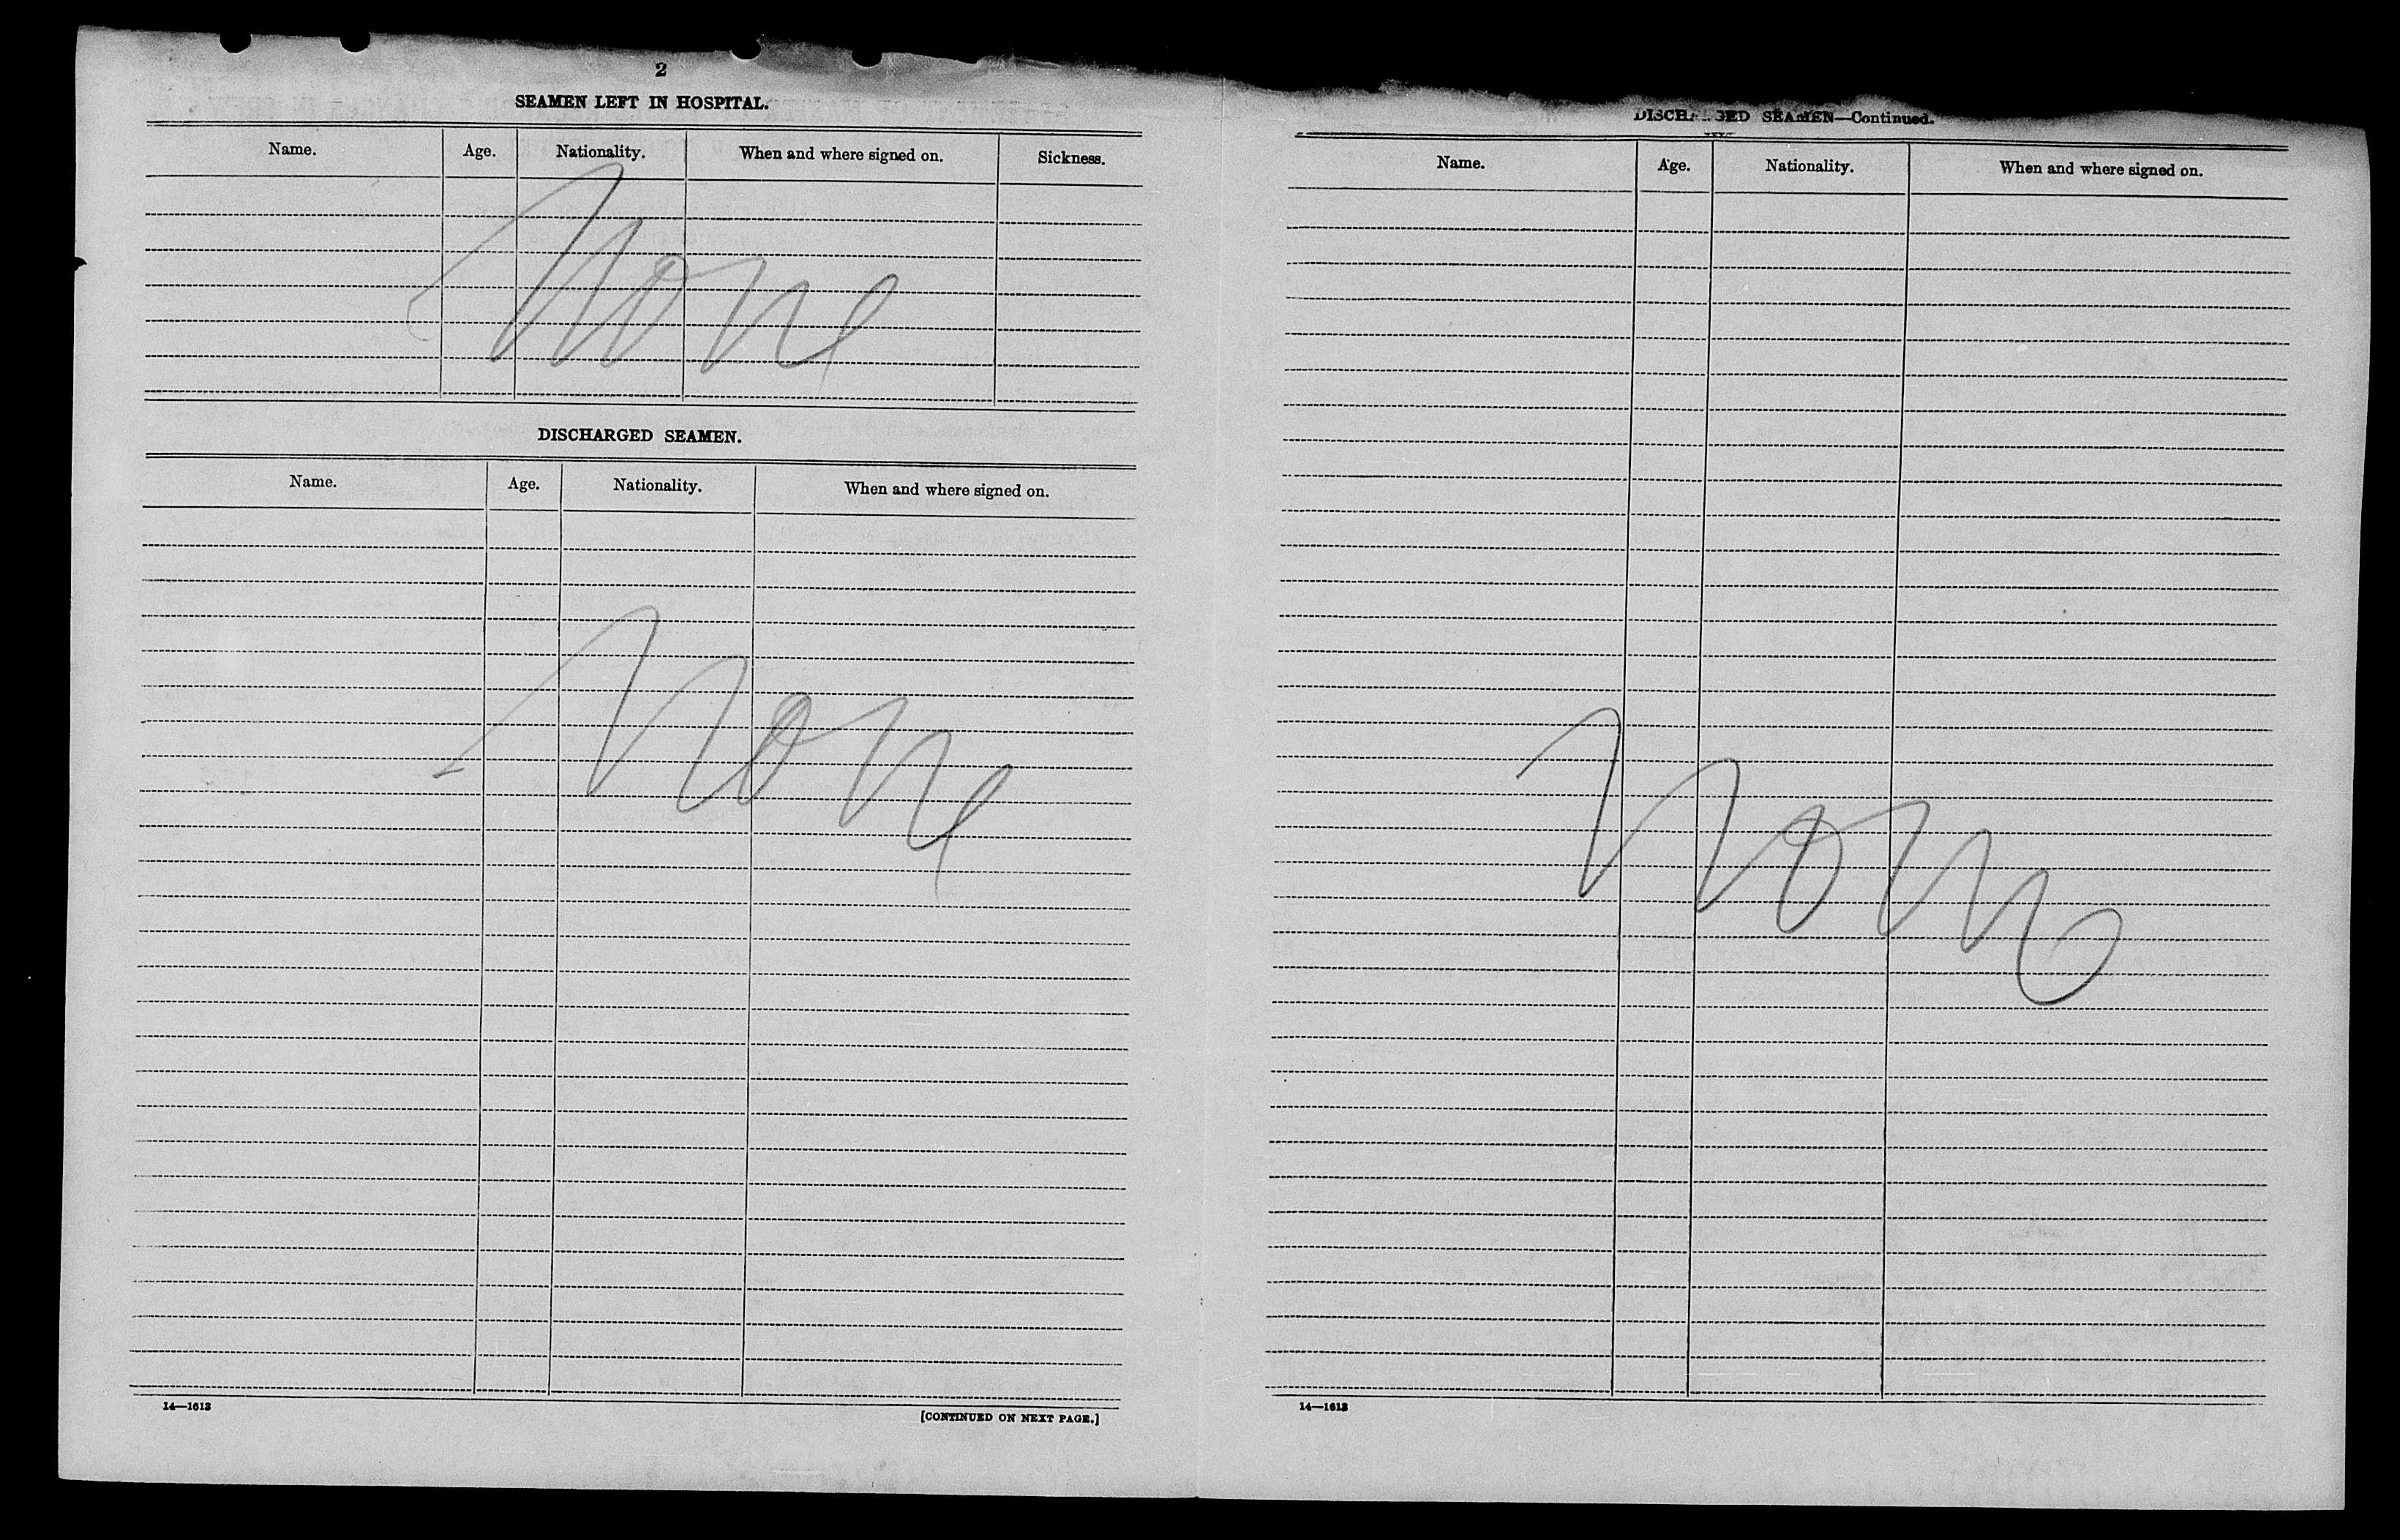 2
SEAMEN LEFT IN HOSPITAL.
Name. Age. Nationality. When and where signed on. Sickness.
None
DISCHARGED SEAMEN.
Name. Age. Nationality. When and where signed on.
None
14—1613
[CONTINUED ON NEXT PAGE.]
DISCHARGED SEAMEN—Continued.
Name. Age. Nationality. When and where signed on.
None
14—1613